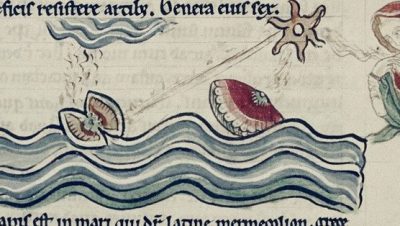 ficis resiſtere artibꝫ. Genera eius sex.
apis est in mari qui dr̄ latine mermecolion,